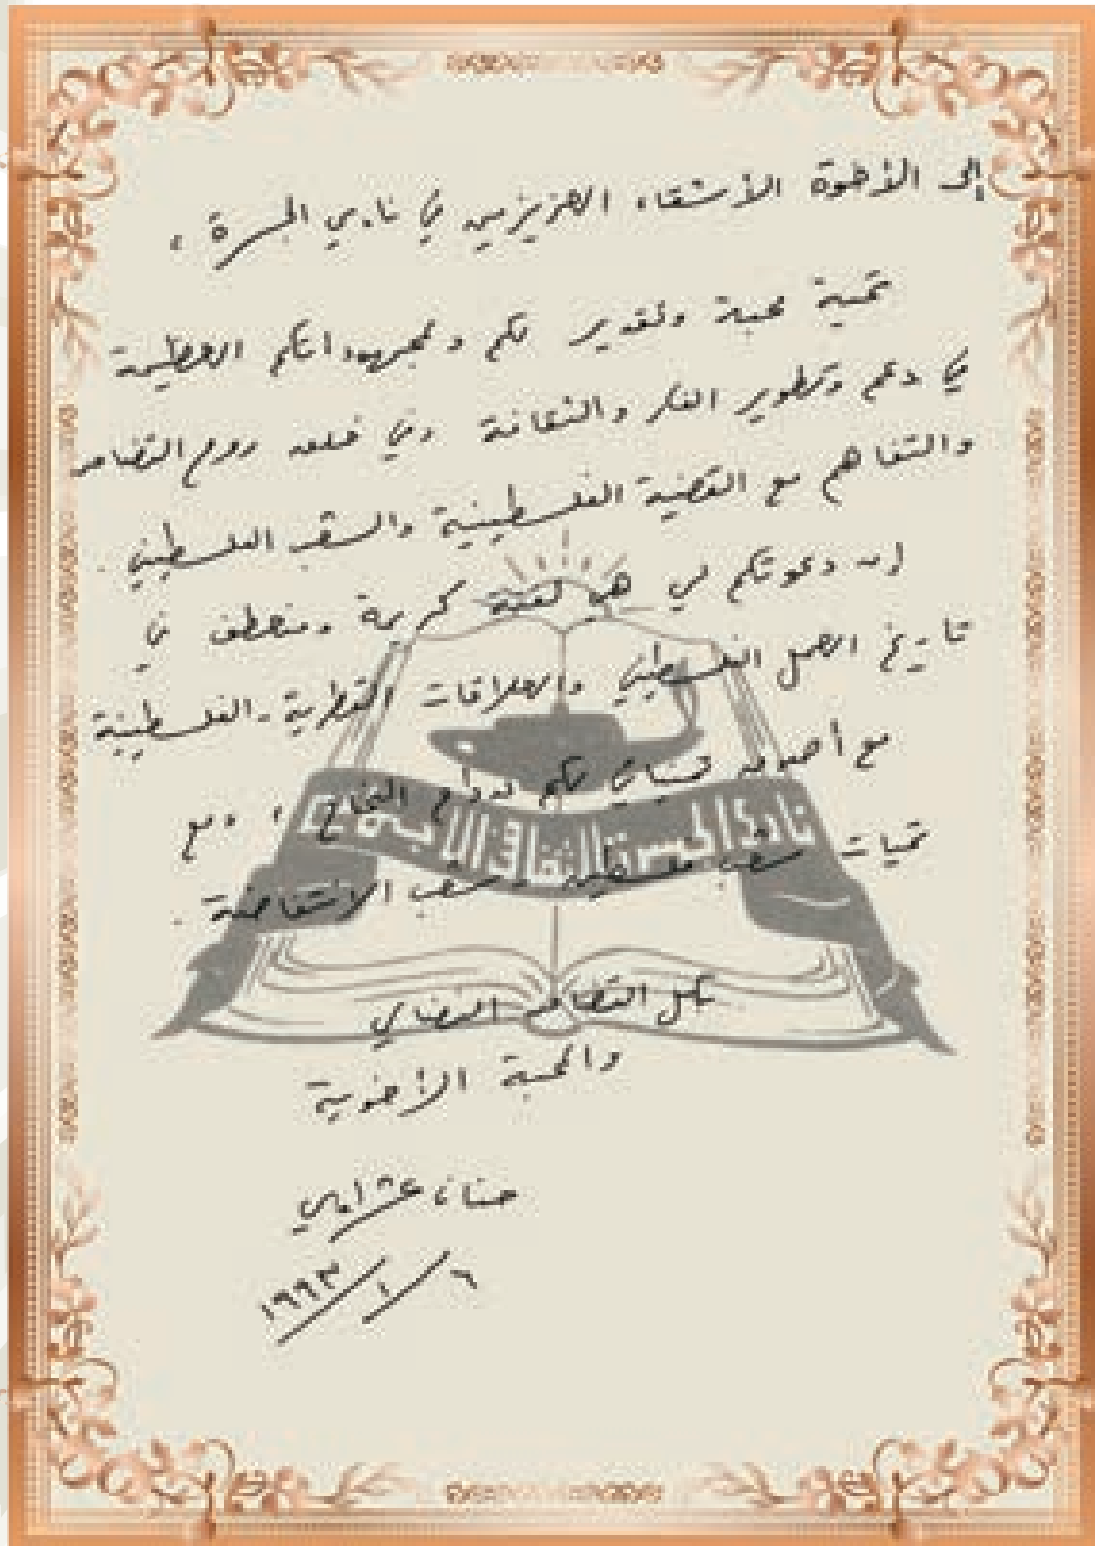 إلى الأخوة الأشقاء العزيزين في نادي الجسرة ،
تحية محبة وتقدير لكم ولمجهوداتكم العظيمة
في دعم وتطوير الفكر والثقافة وفي خلق روح التضامن
والتفاهم مع القضية الفلسطينية والشعب الفلسطيني .
إن دعوتكم لي هي لفتة كريمة ومنعطف في
تاريخ العمل الفلسطيني والعلاقات القطرية - الفلسطينية
مع أصدق تمنياتي لكم بدوام النجاح ، ومع
تحيات شعب فلسطين وشعب الانتفاضة .
نادي الجسرة الثقافي الاجتماعي
بكل التضامن النضالي
والمحبة الأخوية
حنان عشراوي
٦ / ١ / ١٩٩٣